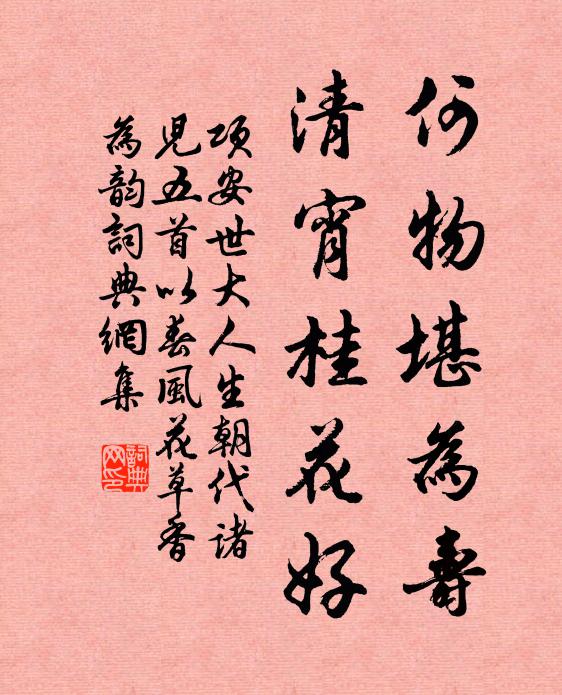 何物堪為壽
清宵桂花好
項安世大人生朝代諸
兒五首以春風花草香
為韵詞典網集
詞典
网印